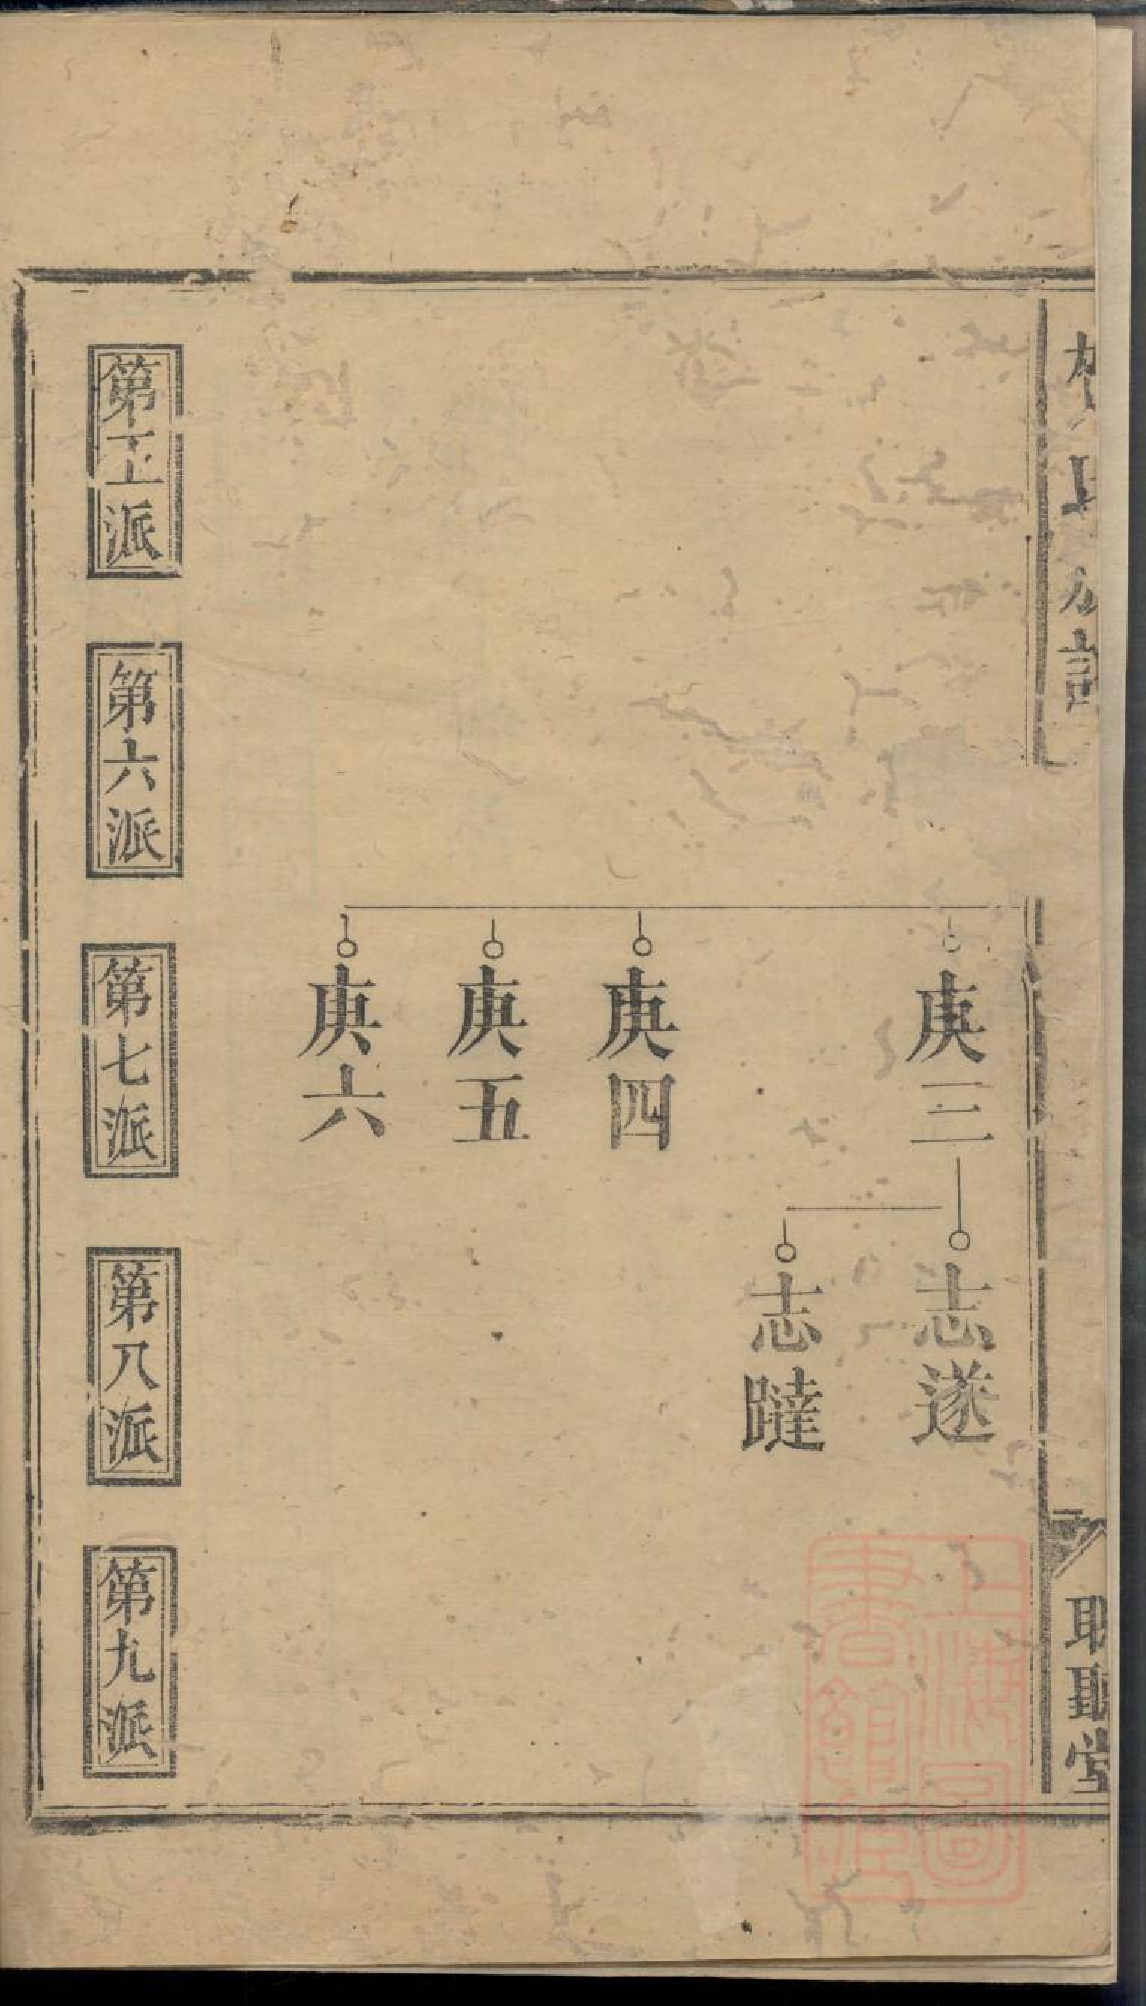 氏族譜
聽堂
庚三
志遂
志躂
庚四
庚五
庚六
第五派
第六派
第七派
第八派
第九派
上海圖
書館藏